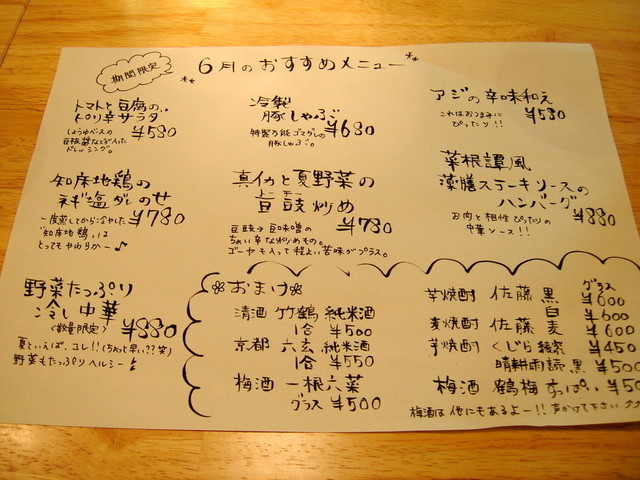 期間限定
6月のおすすめメニュー
トマトと豆腐の
ピリ辛サラダ
¥580
しょうゆベースの
豆板醤などが入った
ドレッシング。
冷製
豚しゃぶ
¥680
特製万能ゴマダレの
豚しゃぶ。
アジの辛味和え
¥580
これはおつまみに
ぴったり!!
知床地鶏の
ネギ塩ダレのせ
¥780
一度蒸してから冷やした
"知床地鶏"は
とってもやわらかー♪
真イカと夏野菜の
豆鼓炒め
¥780
豆鼓→豆味噌の
ちょい辛な炒めもの。
ゴーヤも入って程よい苦味がプラス。
菜根譚風
薬膳ステーキソースの
ハンバーグ
¥880
お肉と相性ぴったりの
中華ソース!!
野菜たっぷり
冷し中華
<数量限定>
¥880
夏といえば、コレ!!(ちょっと早い??笑)
野菜もたっぷりヘルシー!
おまけ
清酒 竹鶴 純米酒
1合 ¥500
京都 六玄 純米酒
1合 ¥550
梅酒 一根六菜
グラス ¥500
グラス
芋焼酎 佐藤 黒 ¥600
白 ¥600
麦焼酎 佐藤 麦 ¥600
芋焼酎 くじら ¥450
晴耕雨読 黒 ¥500
梅酒 鶴梅 すっぱい ¥50
梅酒は他にもあるよー!!声かけて下さい